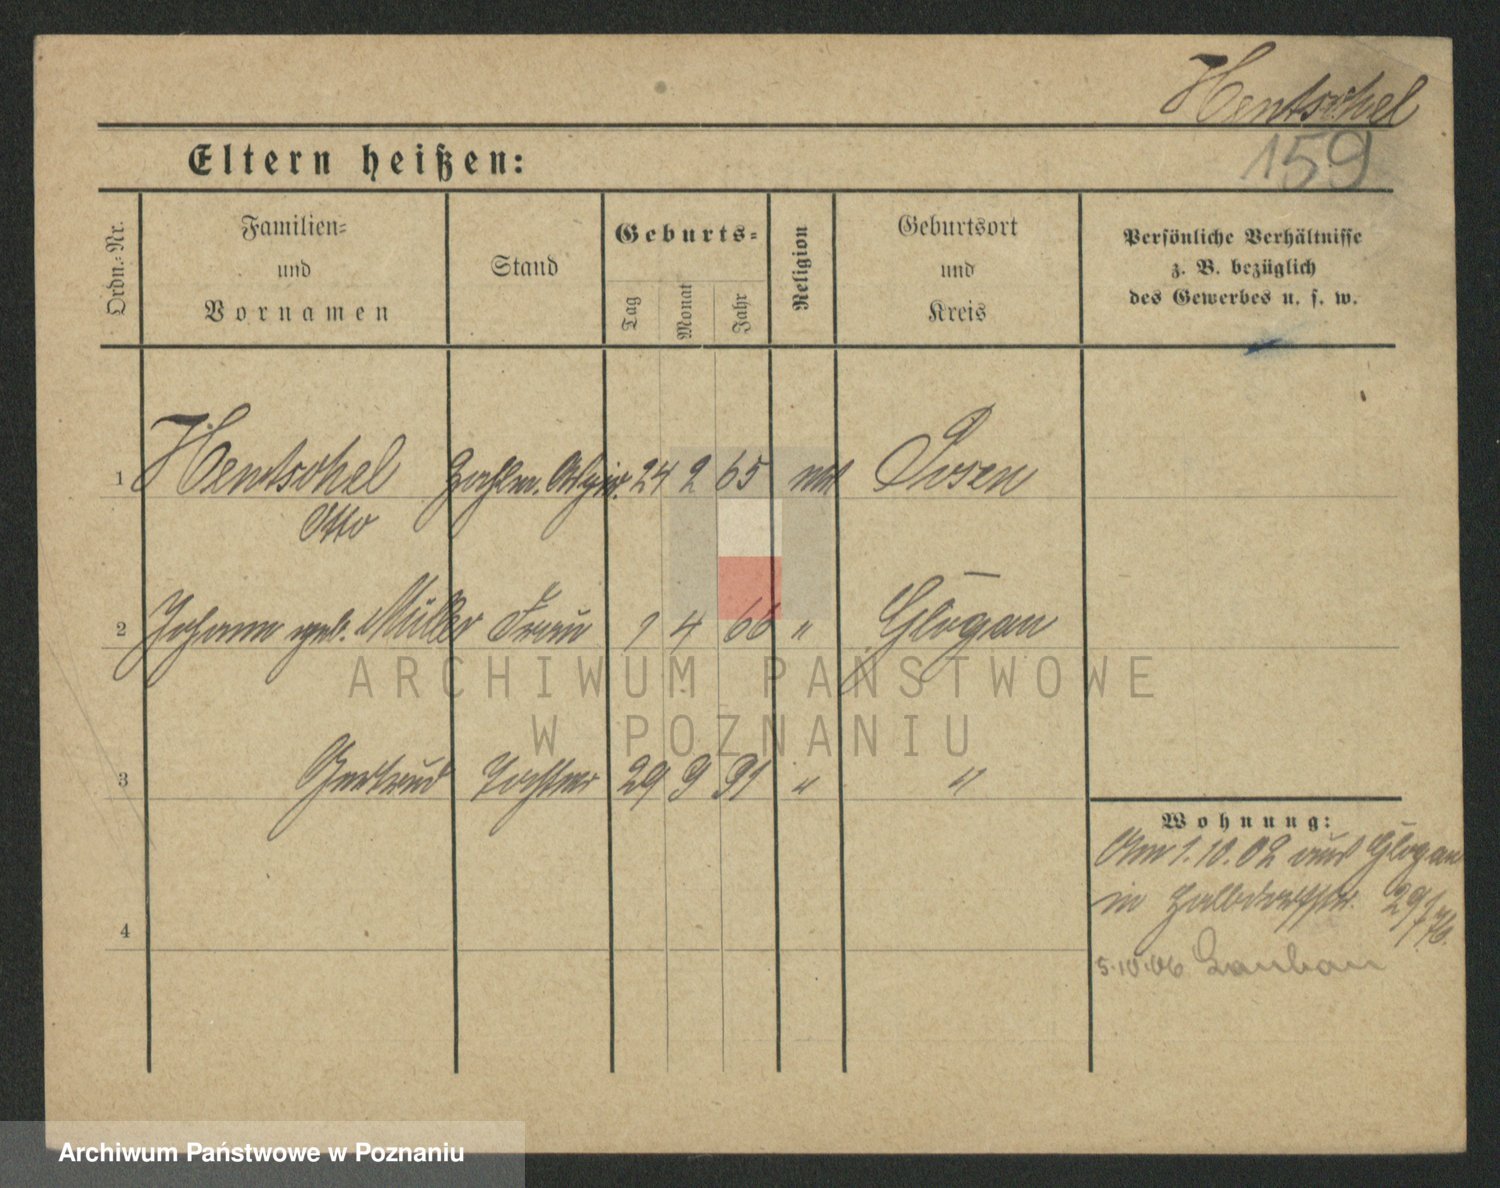 Hentschel
159
Eltern heißen:
Ordn.-Nr.
Familien-
und
Vornamen
Stand
Geburts-
Tag
Monat
Jahr
Religion
Geburtsort
und
Kreis
Persönliche Verhältnisse
z. B. bezüglich
des Gewerbes u. s. w.
1 Hentschel Zahlm. 24 2 65 Posen
Otto
2 Johanna geb. Müller Frau 1 4 66 " Glogau
3 Gertrud Tochter 29 9 91 " "
4
Wohnung:
Am 1.10.02 aus Glogau
in Halbdorfstr. 29
5.10.06 Lauban
ARCHIWUM PAŃSTWOWE
W POZNANIU
Archiwum Państwowe w Poznaniu